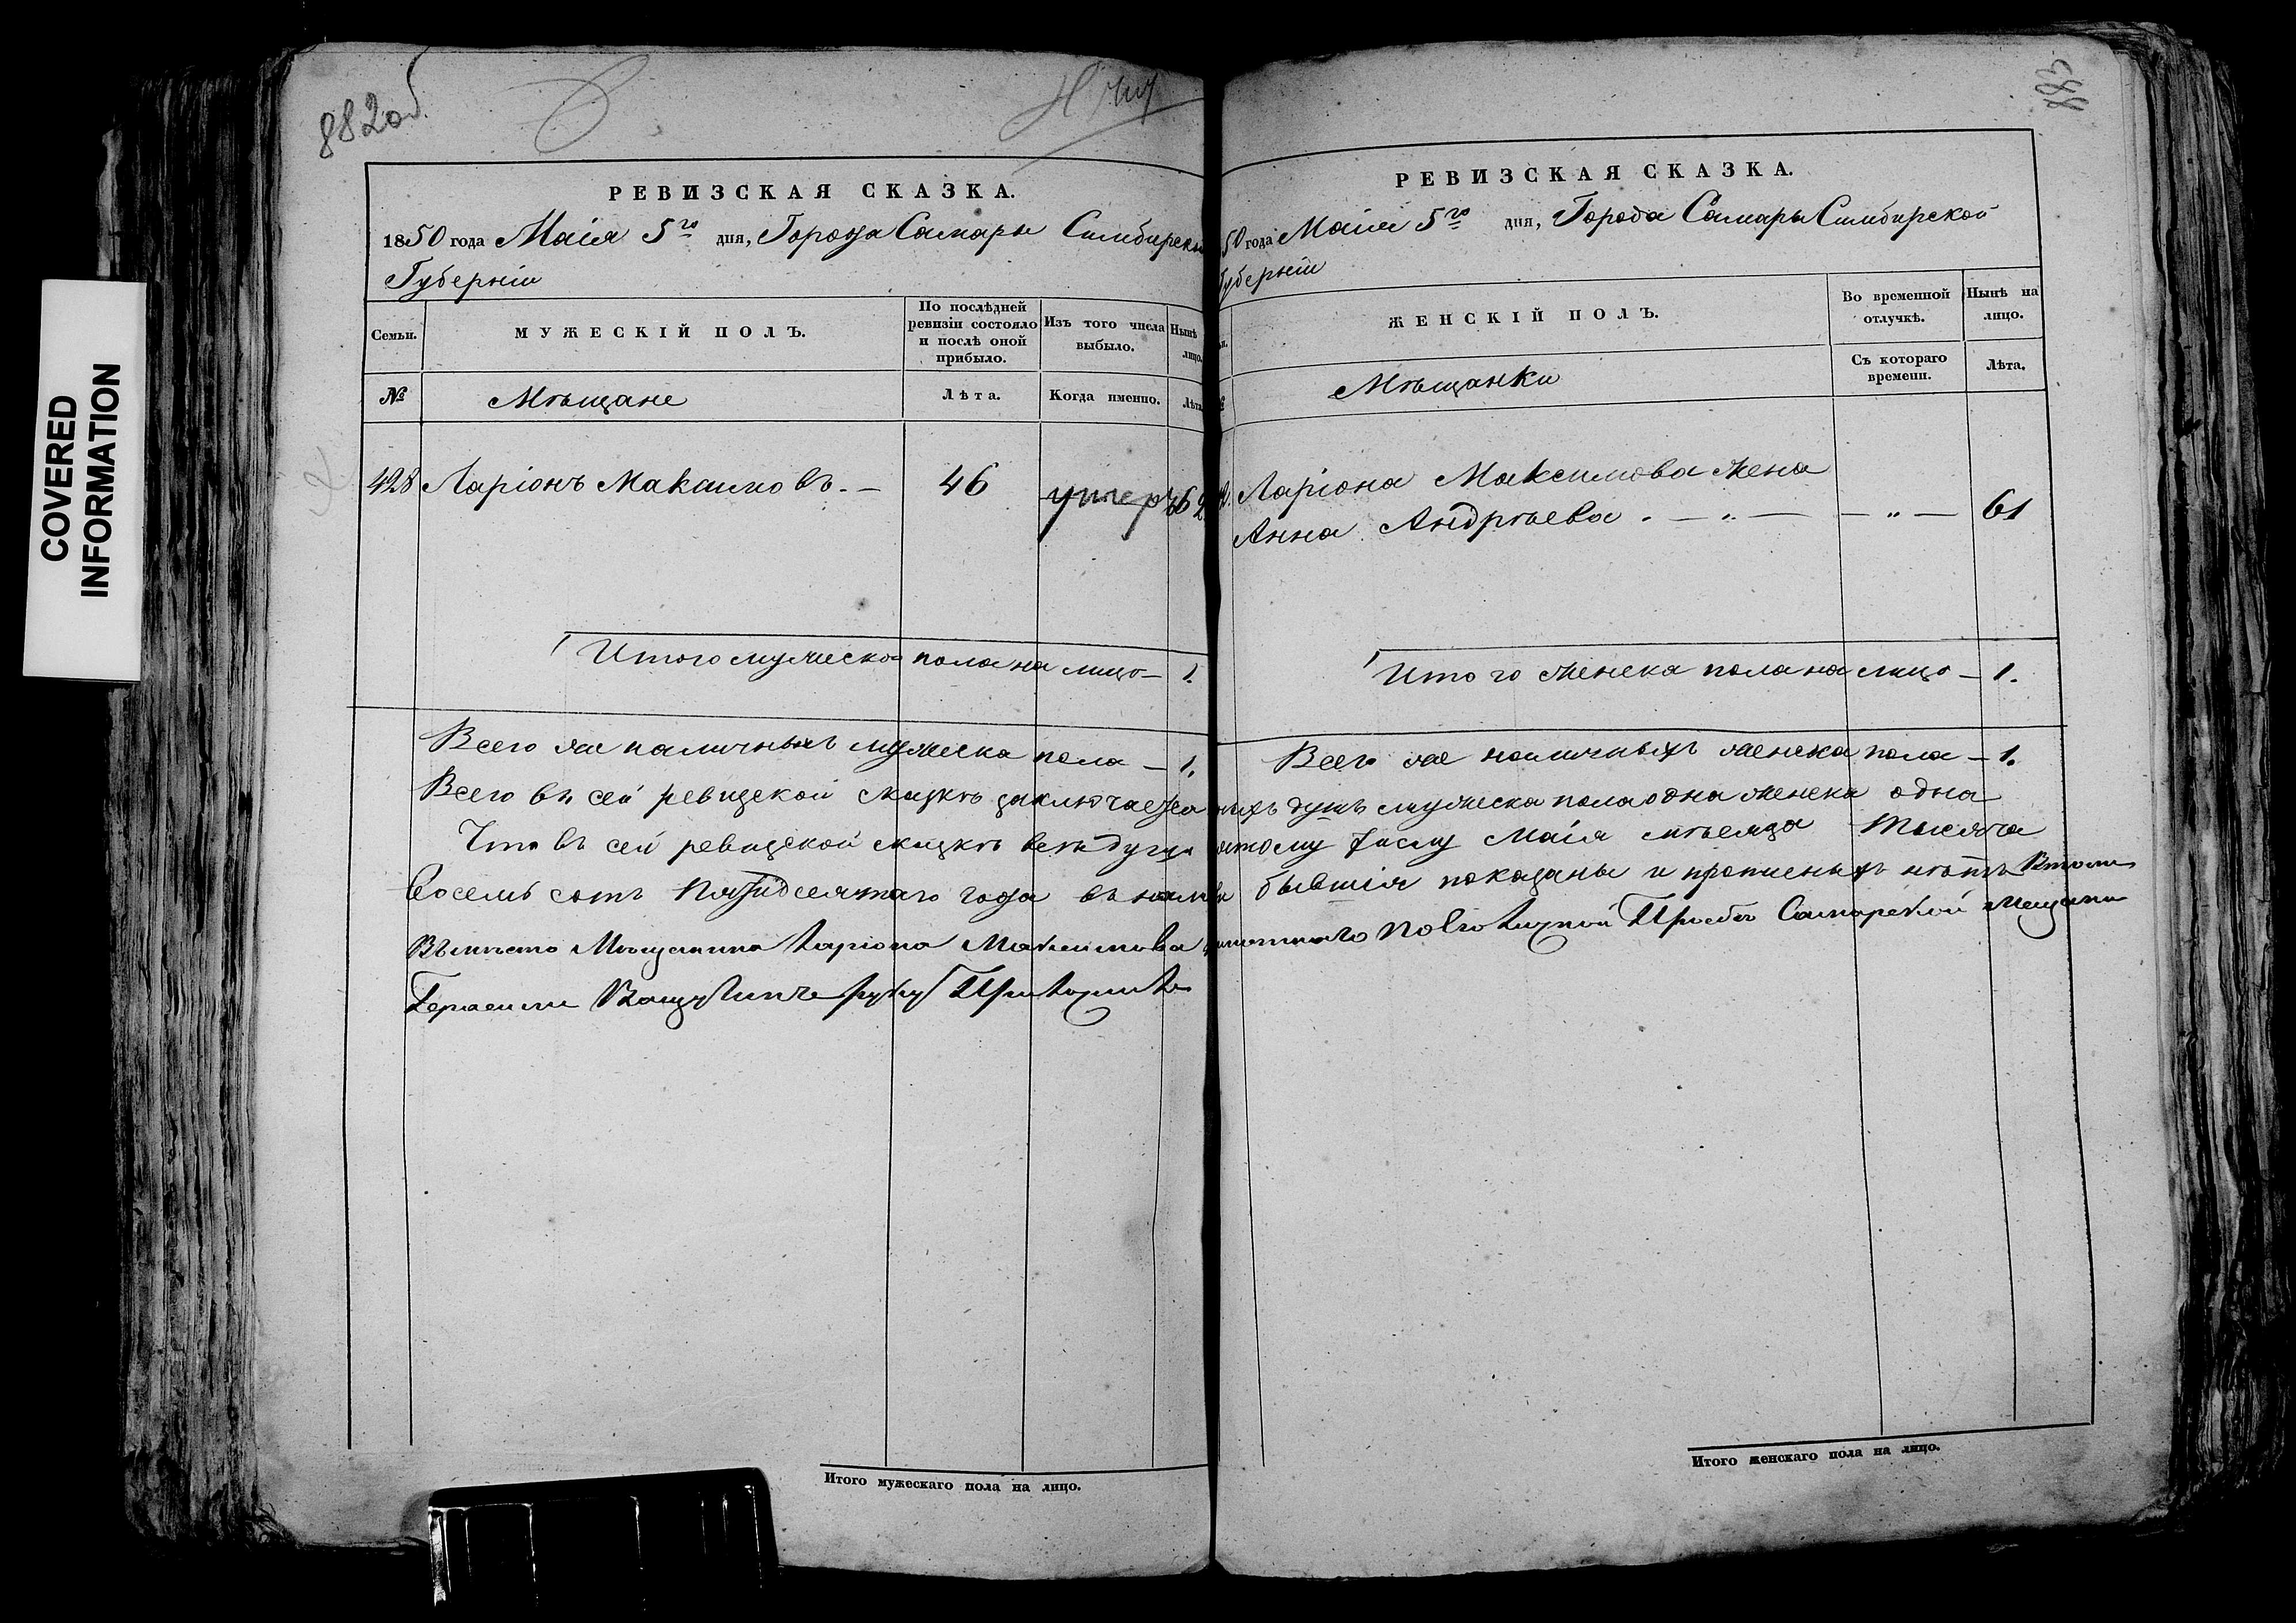 COVERED
INFORMATION
882об.
РЕВИЗСКАЯ СКАЗКА.
1850 года Маія 5го дня, Города Самары Симбирской
Губерніи
Семьи.
МУЖЕСКІЙ ПОЛЪ.
По послѣдней
ревизіи состояло
и послѣ оной
прибыло.
Изъ того числа
выбыло.
Нынѣ
лицо.
№
Мѣщане
Лѣта.
Когда именно.
Лѣта
428 Ларіонъ Максимовъ. — 46 умеръ
Итого мужеска пола на лицо — 1.
Всего же наличныхъ мужеска пола — 1.
Всего въ сей ревизской сказкѣ заключается
Что въ сей ревизской сказкѣ всѣ души
восемь сотъ пятидесятаго года въ
Вѣместо Мѣщанина Ларіона Максимова
Герасимъ руку Приложилъ
Итого мужескаго пола на лицо.
883
РЕВИЗСКАЯ СКАЗКА.
50 года Маія 5го дня, Города Самары Симбирской
Губерніи
ЖЕНСКІЙ ПОЛЪ.
Во временной
отлучкѣ.
Нынѣ на
лицо.
Мѣщанки
Съ котораго
времени.
Лѣта.
Ларіона Максимова жена
Анна Андрѣева . — „ — — „ — 61
Итого женска пола на лицо — 1.
Всего же наличныхъ женска пола — 1.
душъ мужеска пола одна женска одна
числу Маія мѣсяца тысяча
бывшія показаны и прописныхъ нѣтъ Втомъ
Прозбѣ Самарской мещанинъ
Итого женскаго пола на лицо.